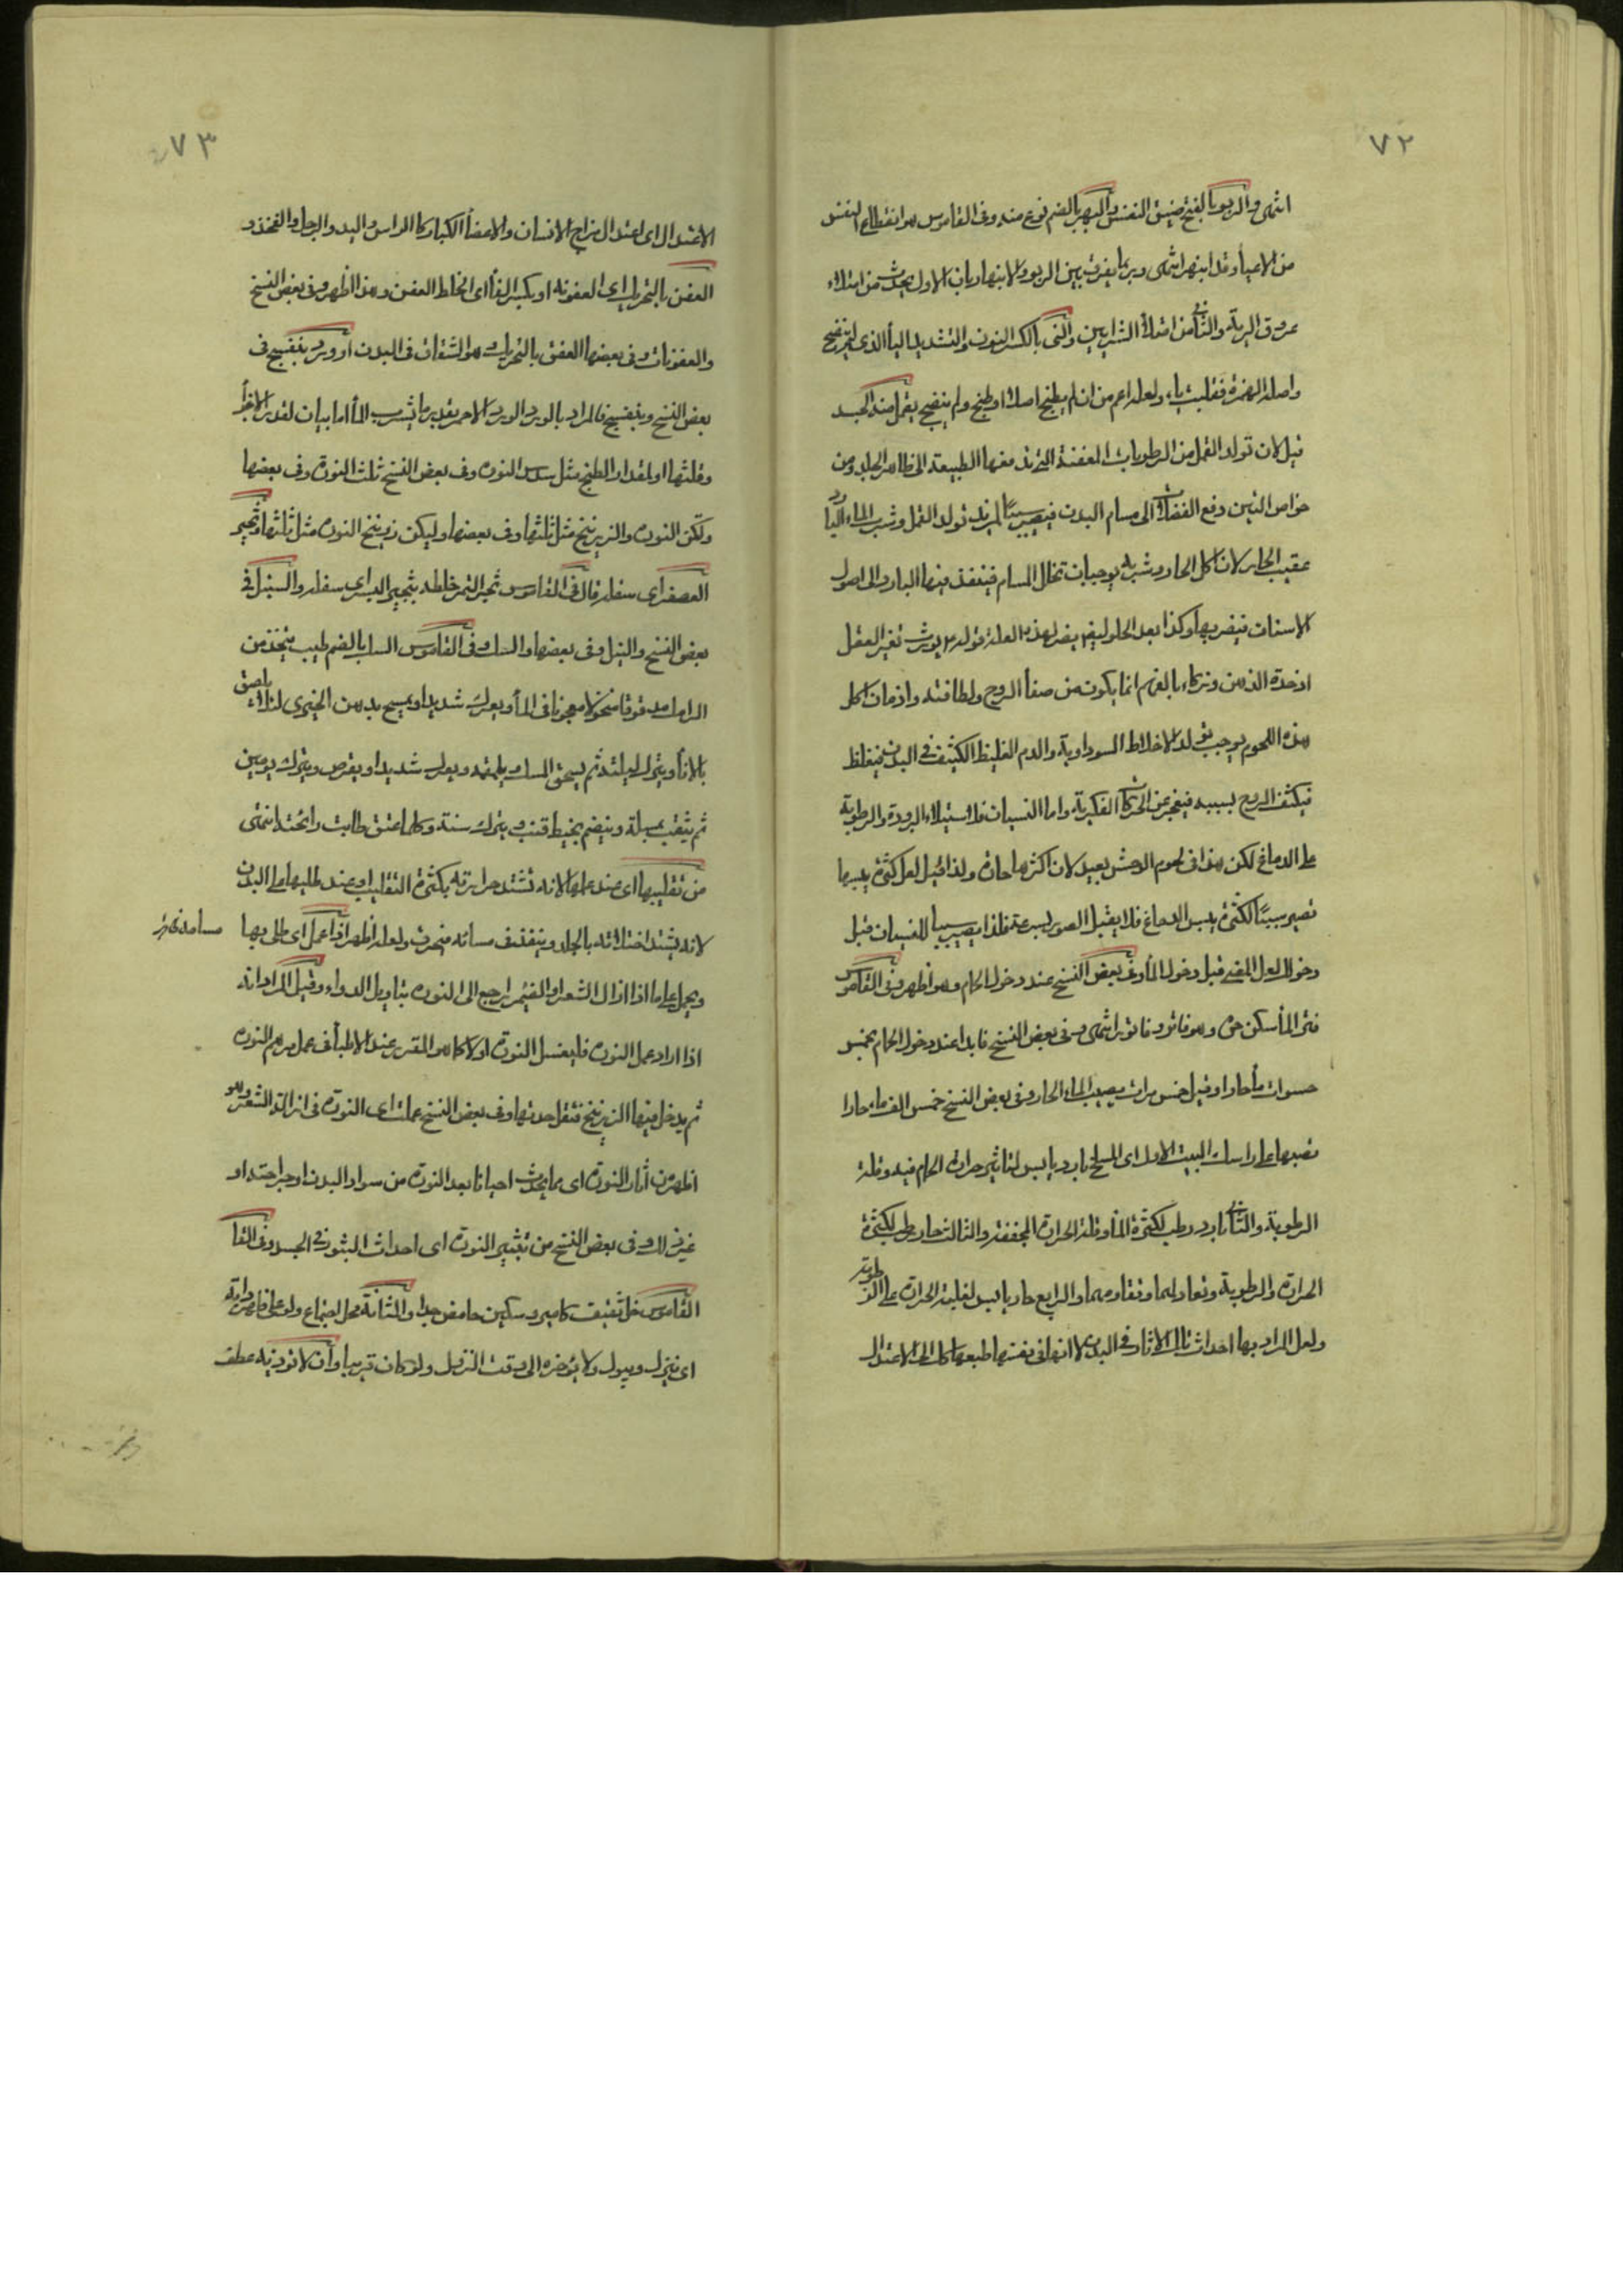 ٧٢
انتهى والربو بالفتح ضيق النفس والبهر بالضم نوع منه وفى القاموس هو انقطاع النفس
من الاعيأ وقد انبهر انتهى وربما يفرق بين الربو والانبهار بان الاول يحدث من امتلاء
عروق الرية والثانى من امتلأ الشرايين والنى بالكسر النون والتشديد اليأ الذى لم ينضج
واصله الهمزة فقلبت ياء ولعله اعم من ان لم يطبخ اصلا او طبخ ولم ينضج يقمل منه الجسد
قيل لان تولد القمل من الرطوبات المعفنة التى تدفعها الطبيعة الى ظاهر الجلد ومن
خواص التين دفع الفضلات الى مسام البدن فيصير سببًا لمزيد تولد القمل وشرب الماء البارد
عقيب الحار لان اكل الحار وشربه يوجبان تخلل المسام فينفذ فيها البارد الى اصول
الاسنان فيضر بها وكذا بعد الحلو ليضر لهذه العلة قوله يورث تغير العقل
اذ حدة الذهن وذكاء الفهم انما يكون من صفأ الروح ولطافته وادمان اكل
هذه اللحوم يوجب تولد الاخلاط السوداوية والدم الغليظ الكثيف فى البدن فيغلظ
فيكثف الروح بسببه فيعجز عن الحركات الفكرية واما النسيان فلاستيلاء البرودة والرطوبة
على الدماغ لكن هذا فى لحوم الوحش بعيد لان اكثرها حارة ولذا قيل لعل كثرة يبسها
تصير سببًا لكثرة يبس الدماغ فلا يقبل الصور بسرعة فلذا يصير سببا للنسيان قبل
دخولك لعل المعنى قبل دخول المأ وفى بعض النسخ عند دخول الحمام وهو اظهر وفى القاموس
فتر المأ سكن حره وهو فاتر وفاتور انتهى وفى بعض النسخ فابدا عند دخول الحمام بخمس
حسوات مأ حارا وقيل خمس مرات يصب الماء الحار وفى بعض النسخ خمس اكف ماء حارا
تصبها على راسك البيت الاول اى المسلخ بارد يابس لتاثير حرارة الحمام فيه وقلة
الرطوبة والثانى بارد رطب لكثرة المأ وقلة الحرارة المجففة والثالث حار رطب لكثرة
الحرارة والرطوبة وتعادلهما وتقاومهما والرابع حار يابس لغلبة الحرارة على الرطوبة
ولعل المراد بها احداث تلك الاثار فى البدن لا انها فى نفسها طبعها كذلك الى الاعتدال
٧٣
الاعتدال اى اعتدال مزاج الانسان والاعضأ الكبار كالراس واليد والرجل والفخذ و
العفن بالتحريك اى العفونة او بكسر الفأ اى الخلط العفن وهذا اظهر وفى بعض النسخ
والعفونات وفى بعضها العفق بالتحريك وهو الشقاق فى البدن او ورد بنفسج فى
بعض النسخ وبنفسج فالمراد بالورد الورد الاحمر بقدر ما يشرب المأ اما بيان لقدر الاجزأ
وقلتها او لمقدار الطبخ مثل سدس النورة وفى بعض النسخ ثلث النورة وفى بعضها
ولتكن النورة والزرنيخ مثل ثلثها وفى بعضها وليكن زرنيخ النورة مثل ثلثها وثجير
العصفر اى سفله قال فى القاموس ثجر التمر خلطه بثجير البسر اى سفله والسنبل فى
بعض النسخ والنيل وفى بعضها والسك وفى القاموس السك بالضم طيب يتخذ من
الرامك مدقوقا منخولا معجونا فى المأ ويعرك شديدا ويمسح بدهن الخيرى لئلا يلصق
بالانأ ويترك ليلته ثم يسحق المسك ويلقمه ويعرك شديدا ويقرص ويترك يومين
ثم يثقب بمسلة وينضم بخيط قنب ويترك سنة وكلما عتق طابت رائحته انتهى
من تقليبها اى عند عملها لانه تشتد حرارته بكثرة التقليب او عند طليها على البدن
لانه يشتد اختلاطه بالجلد وينفذ فى مسامه فيحرق ولعله اظهر اذا عمل اى طلى بها
مسامه فيحرق
ويحمل على ما اذا ازال الشعر او الضمير راجع الى النورة بتاويل الدواء وقيل المراد انه
اذا اراد عمل النورة فليغسل النورة اولا كما هو المقرر عند الاطبأ فى عمل مرهم النورة
ثم يدخل فيها الزرنيخ فتقل حدتها وفى بعض النسخ عملت اى النورة فى ازالة الشعر وهو
اظهر من أثار النورة اى ما يحدث احيانا بعد النورة من سواد البدن او جراحته او
غير ذلك وفى بعض النسخ من تبثير النورة اى احداث البثور فى الجسد وفى القا
القاموس خل ثقيف كامير وسكين حامض جدا والمثانة محل اجتماع ولو على ظهر دابة
اى ينزل ويبول ولا يؤخره الى وقت النزول ولو كان قريبا وأن لا تؤذيه عطف